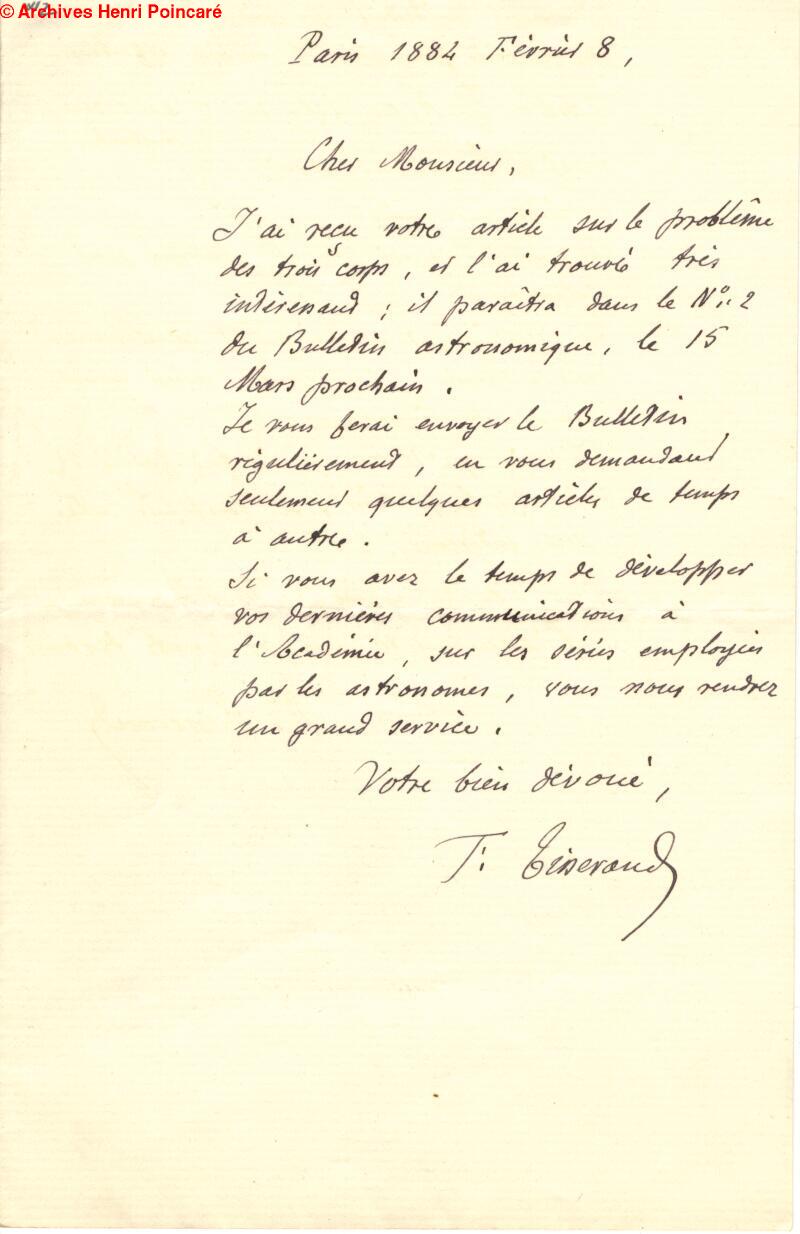 © Archives Henri Poincaré
Paris 1884 Février 8,
Cher Monsieur,
J'ai reçu votre article sur le problême
des trois corps, et l'ai trouvé très
intéressant ; il paraîtra dans le No. 2
du Bulletin astronomique, le 15
Mars prochain.
Je vous ferai envoyer le Bulletin
régulièrement, en vous demandant
seulement quelques articles de temps
à autre.
Si vous avez le temps de développer
vos dernières communications à
l'Académie, sur les séries employées
par les astronomes, vous nous rendrez
un grand service.
Votre bien dévoué,
F. Tisserand